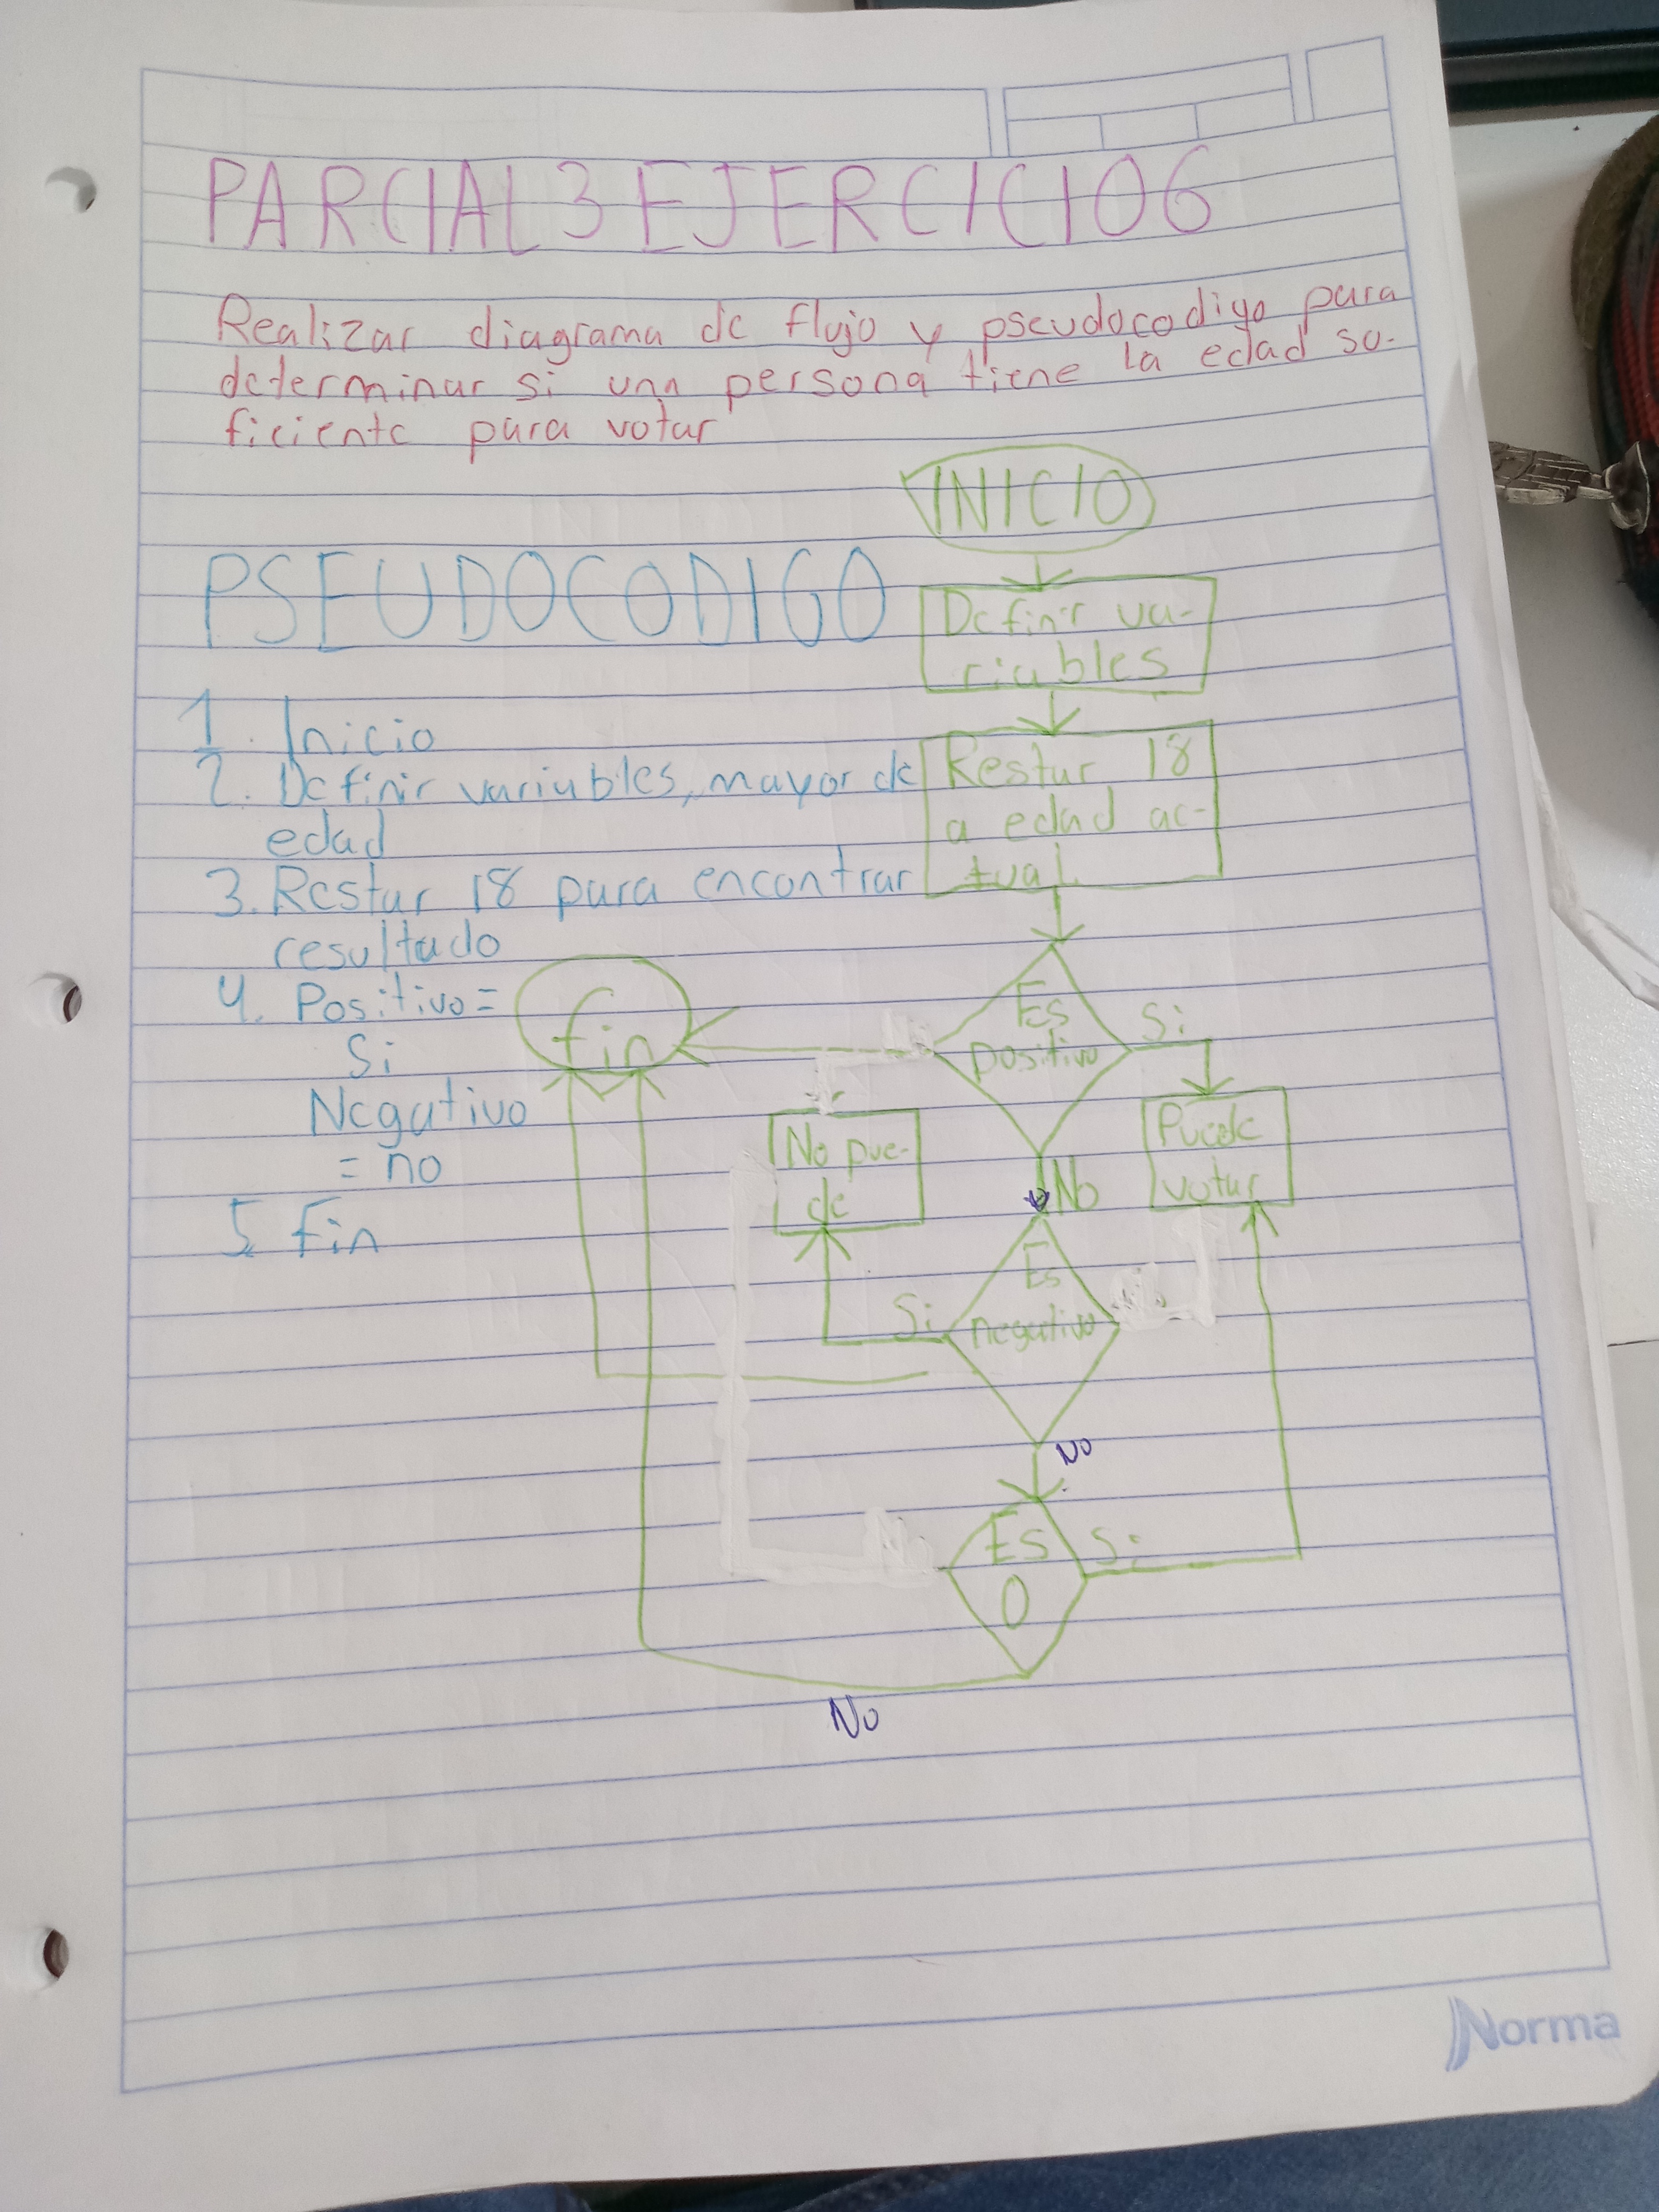 PARCIAL 3 EJERCICIO 6
Realizar diagrama de flujo y pseudocodigo para
determinar si una persona tiene la edad su-
ficiente para votar
PSEUDOCODIGO
1. Inicio
2. Definir variables, mayor de
edad
3. Restar 18 para encontrar
resultado
4. Positivo =
Si
Negativo
= no
5. Fin
INICIO
Definir va-
riables
Restar 18
a edad ac-
tual
Es
positivo
Si
Puede
votar
No
fin
No pue-
de
Es
negativo
Si
No
Es
0
Si
No
Norma